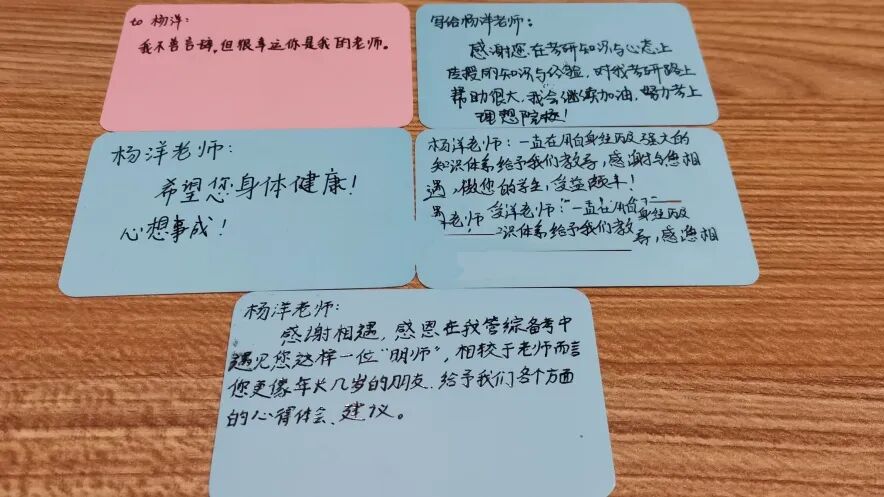 to 杨洋:
我不善言辞,但很幸运你是我的老师。
写给杨洋老师:
感谢您在考研知识与心态上
传授的知识与经验,对我考研路上
帮助很大,我会继续加油,努力考上
理想院校!
杨洋老师:
希望您身体健康!
心想事成!
杨洋老师:一直在用自身经历及强大的
知识体系给予我们教导,感谢与您相
遇,做您的学生,受益颇丰!
老师 洋老师:一直在用自
识体系给予我们教导,感恩相
杨洋老师:
感谢相遇,感恩在我管综备考中
遇见您这样一位“明师”,相较于老师而言
您更像年长几岁的朋友,给予我们各个方面
的心得体会、建议。